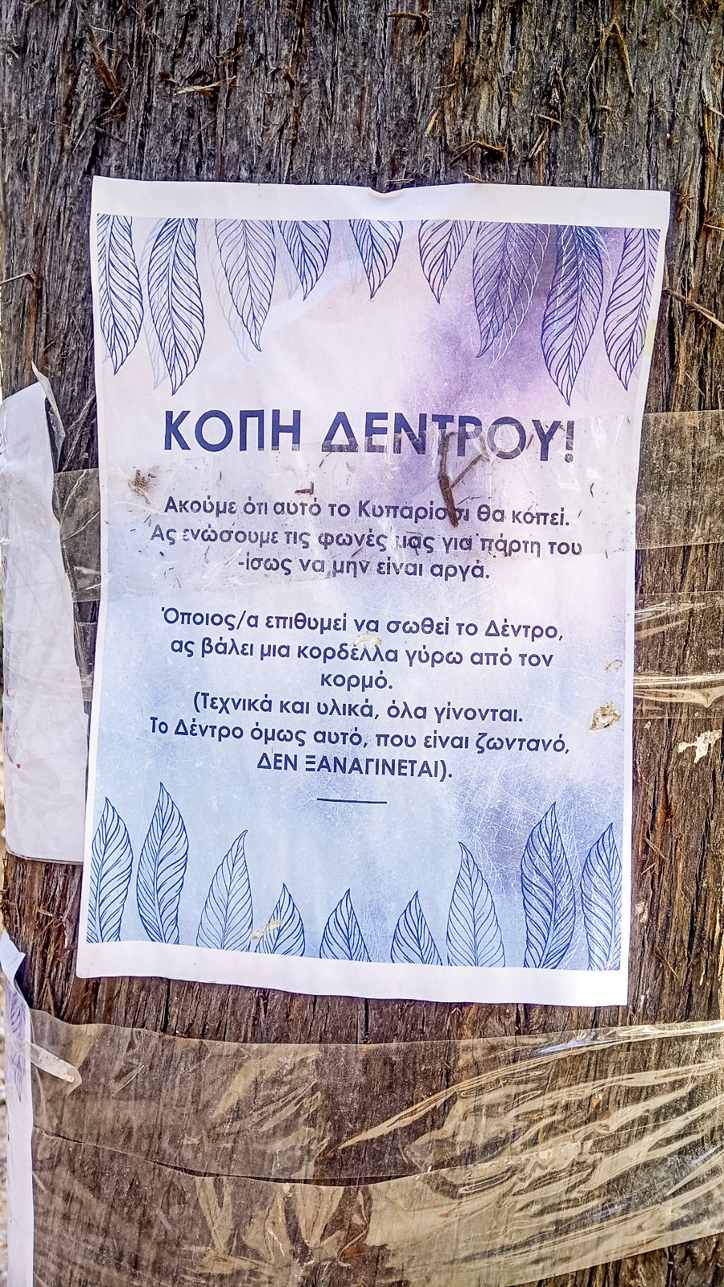 ΚΟΠΗ ΔΕΝΤΡΟΥ!
Ακούμε ότι αυτό το Κυπαρίσσι θα κοπεί.
Ας ενώσουμε τις φωνές μας για πάρτη του
-ίσως να μην είναι αργά.
Όποιος/α επιθυμεί να σωθεί το Δέντρο,
ας βάλει μια κορδέλλα γύρω από τον
κορμό.
(Τεχνικά και υλικά, όλα γίνονται.
Το Δέντρο όμως αυτό, που είναι ζωντανό,
ΔΕΝ ΞΑΝΑΓΙΝΕΤΑΙ).